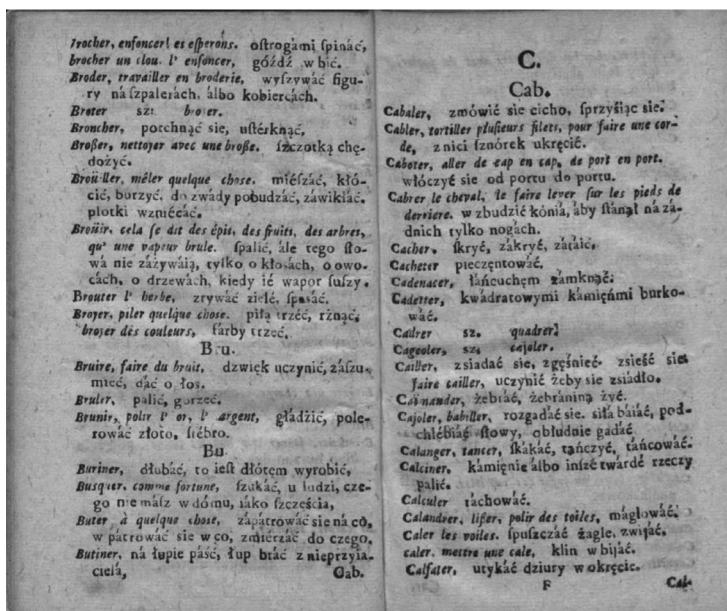 Brocher, enfoncer les esperons. oſtrogámi ſpináć,
brocher un clou. l' enfoncer, góźdź w bić.
Broder, travailler en broderie, wyſzywáć figu-
ry ná ſzpalerách, álbo kobiercách.
Broter sz. broïer.
Broncher, potchnąć sie, uſtérknąć,
Broßer, nettoyer avec une broße. ſzczotką chę-
dożyć.
Broüiller, mêler quelque chose. miéſzáć, kłó-
cić, burzyć, do zwády pobudzáć, záwikláć,
plotki wzniécáć.
Broüir, cela ſe dit des épis, des fruits, des arbres,
qu' une vapeur brule. ſpalić, ále tego ſło-
wá nie záżywáią, tylko o kłosách, o owo-
cách, o drzewách, kiedy ié wapor ſuſzy.
Brouter l' herbe, zrywáć zielé, ſpasáć.
Broyer, piler quelque chose. piłą trzéć, rżnąć,
broyer des couleurs, fárby trzeć.
Bru.
Bruire, faire du bruit, dzwięk uczynić, zászu-
mieć, dáć o łos.
Bruler, palić, gorzeć.
Brunir, polir l' or, l' argent, głádzić, pole-
rowáć złoto, śrébro.
Bu
Buriner, dłubáć, to ieſt dłótem wyrobić,
Busquer, comme fortune, ſzukáć, u ludzi, cze-
go nie mász w dómu, iáko szczęścia,
Buter à quelque chose, zápátrowáć sie ná co,
w pátrowáć sie w co, zmiérzáć do czego,
Butiner, ná łupie páść, łup bráć z nieprzyia-
ciela,
Cab.
C.
Cab.
Cabaler, zmówić sie cicho, ſprzyśiąc sie.
Cabler, tortiller pluſieurs filets, pour faire une cor-
de, z nici sznórek ukręcić.
Caboter, aller de cap en cap, de port en port.
włóczyć sie od portu do portu.
Cabrer le cheval, le faire lever ſur les pieds de
derriere. w zbudzić kóniá, áby ſtánął ná zá-
dnich tylko nogách.
Cacher. ſkryć, zákryć, zátáić.
Cacheter pieczęntowáć.
Cadenacer, łáńcuchęm zámknąć.
Cadetter, kwádratowymi kámięńmi burko-
wáć.
Cadrer sz. quadrer.
Cageoler, sz. cajoler.
Cailler, zsiadáć sie, zgęśnieć. zsieść sie
faire cailler, uczynić żeby sie zsiádło.
Caïnander, żebráć, żebrániną żyć.
Cajoler, babiller, rozgadáć sie. siłá báiáć, pod-
chlébiáć ſłowy, obłudnie gádáć
Calanger, tancer, ſkákáć, táńczyć, táńcowáć.
Calciner, kámięnie álbo inſzé twárdé rzeczy
palić.
Calculer ráchowáć.
Calandrer, liſſer, polir des toiles, máglowáć.
Caler les voiles. ſpuſzczáć żagle, zwijáć,
caler, mettre une cale, klin w bijáć.
Calfater, utykáć dziury w okręcie.
F Cal-